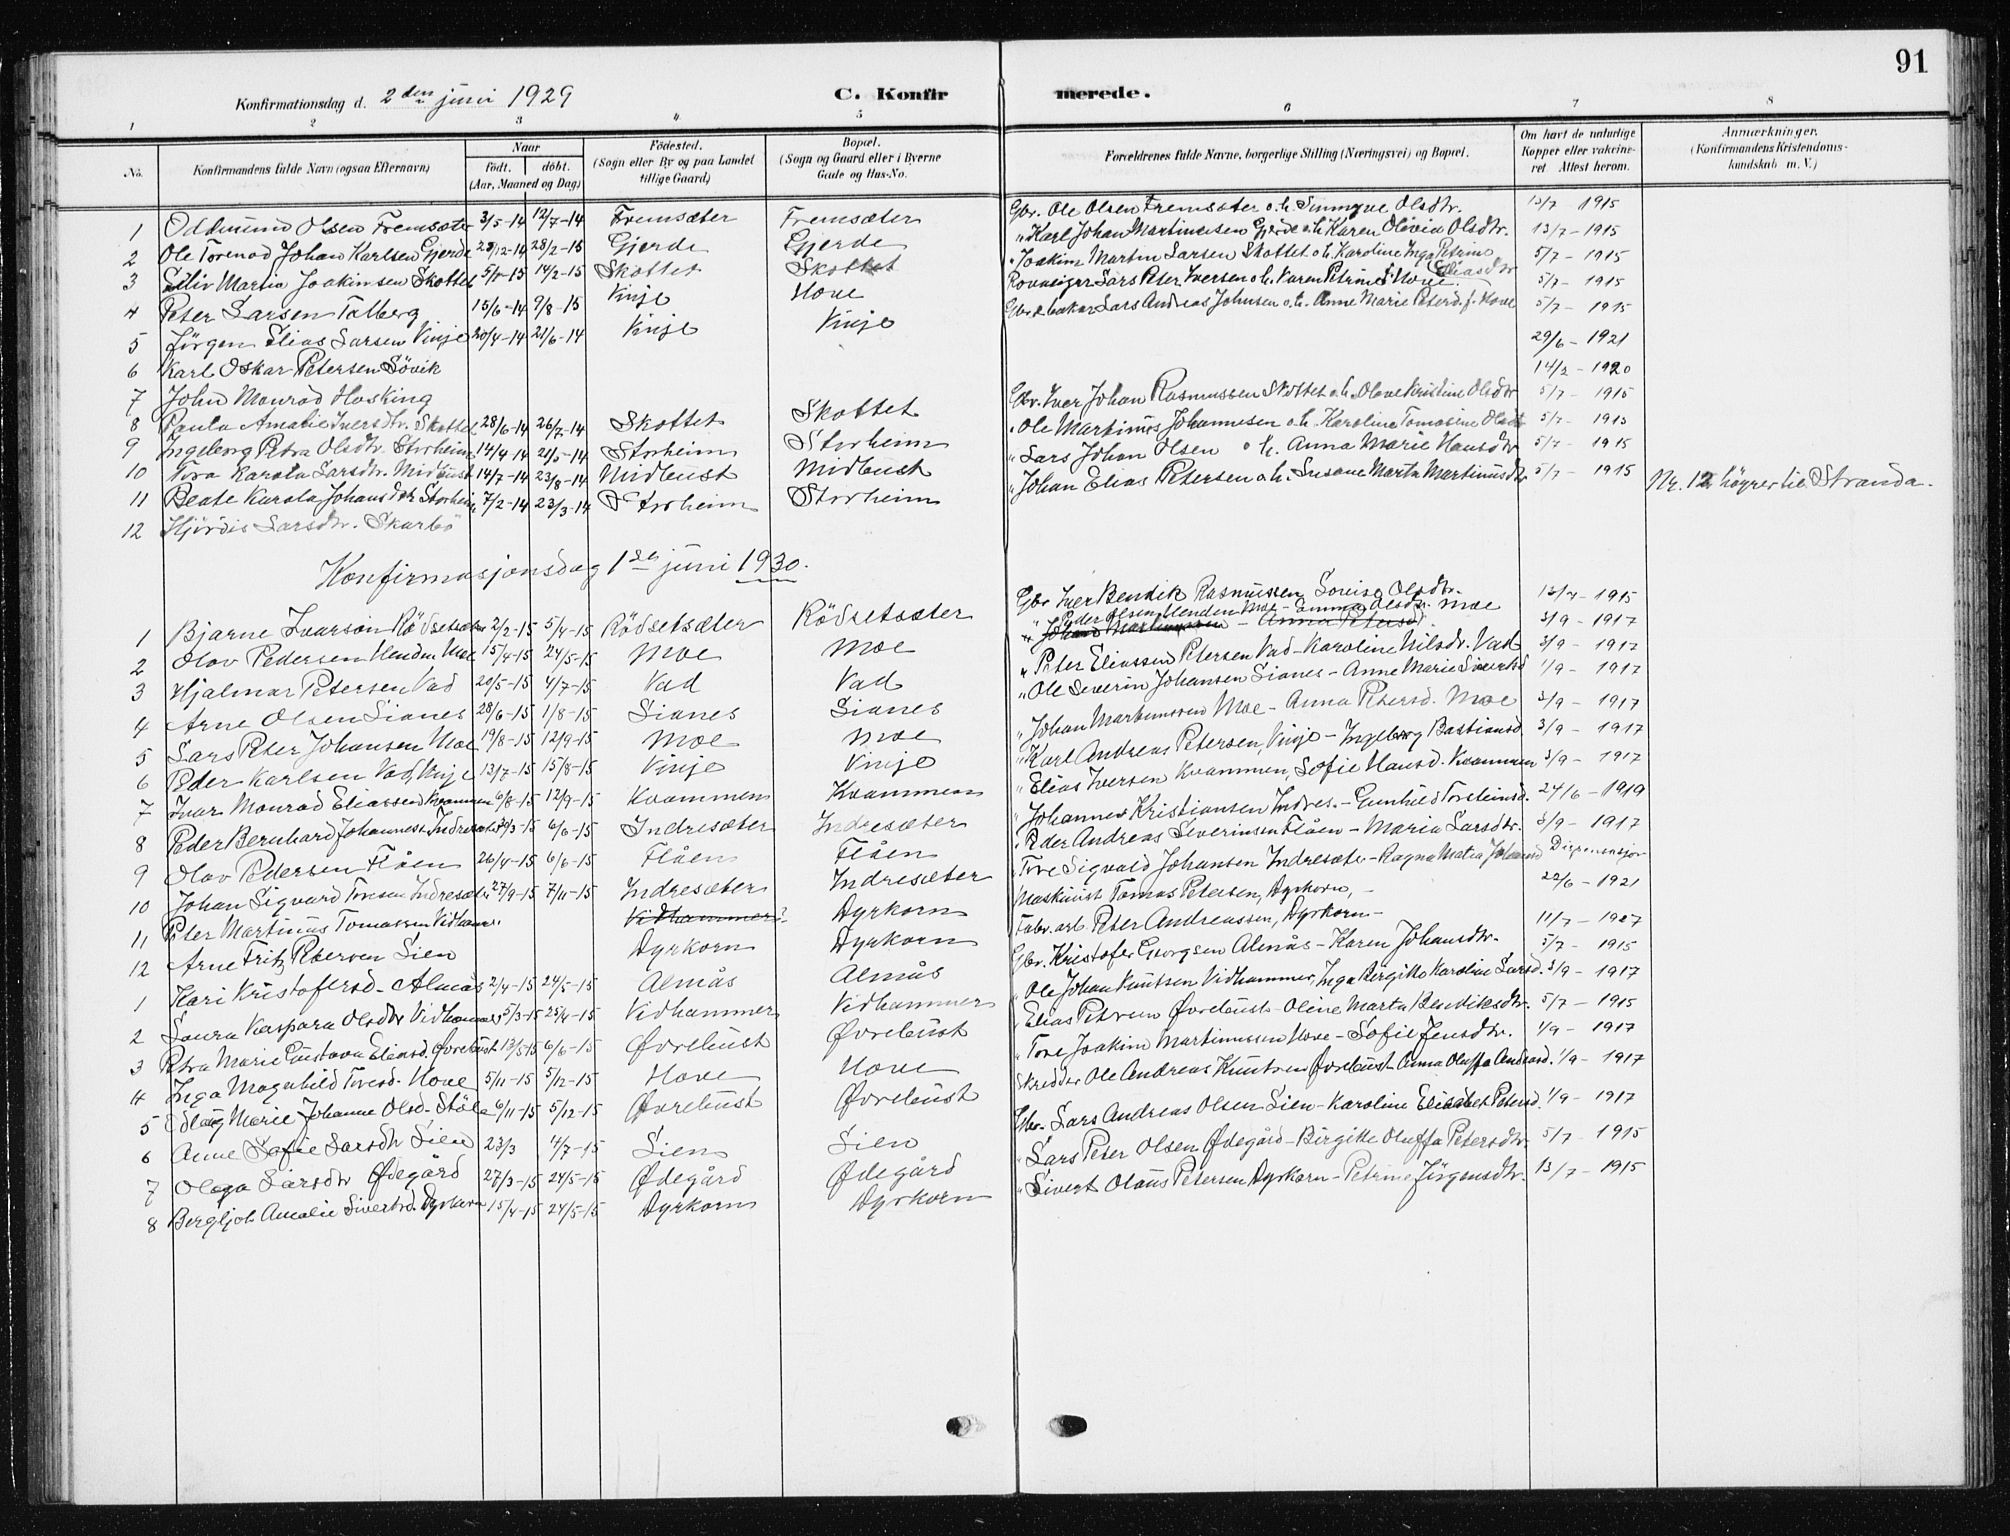 91
Konfirmationsdag d. 2den juni 1929 C. Konfirmerede.
1 2 3 4 5 6 7 8
No. Konfirmandens fulde Navn (ogsaa Efternavn) Naar födt. döbt. (Aar, Maaned og Dag) Födested. (Sogn eller By og paa Landet tillige Gaard) Bopæl. (Sogn og Gaard eller i Byerne Gade og Hus-No. Forældrenes fulde Navne, borgerlige Stilling (Næringsvei) og Bopæl. Om havt de naturlige Kopper eller vakcineret Attest herom. Anmærkninger. (Konfirmandens Kristendomskundskab m. V.)
1 Oddmund Olsen Fremsæter 3/5-14 12/7-14 Fremsæter Fremsæter Gbr. Ole Olsen Fremsæter o.h. Olsdtr. 13/7 - 1915
2 Ole Torenod Johan Karlsen Gjerde 29/12-14 28/2-15 Gjerde Gjerde " Karl Johan Martinusen Gjerde o.h. Karen Olivia Olsdtr. 13/7 - 1915
3 Martin Joakimsen Skottet 5/1-15 14/2-15 Skottet Skottet " Joakim Martin Larsen Skottet o.h. Karoline Inga Petrine Eliasdtr 5/7 - 1915
4 Peter Larsen Talberg 15/6-14 9/8-15 Vinje Hove Lars Peter Iversen o.h. Karen Petrine Hove 5/7 - 1915
5 Jörgen Elias Larsen Vinje 20/4-14 21/6-14 Vinje Vinje Lars Andreas Johnsen o.h. Anne Marie Petersd. f. Hove 5/7 - 1915
6 Karl Oskar Petersen Sövik 29/6 - 1921
7 John Monrad Hosking 14/2 - 1920
8 Paula Amalie Iversdtr. Skottet 28/6-14 26/7-14 Skottet Skottet Gbr. Iver Johan Rasmussen Skottet o.h. Olave Kristine Olsdtr 5/7 - 1915
9 Ingeborg Petra Olsdtr. Storheim 14/4-14 21/5-14 Storheim Storheim " Ole Martinus Johannesen o.h. Karoline Tomasine Olsdtr 5/7 - 1915
10 Tora Karola Larsdtr. Midbust 14/7-14 23/8-14 Midbust Midbust " Lars Johan Olsen o.h. Anna Marie Hansdtr 5/7 - 1915
11 Beate Karola Johansdtr Storheim 7/2-14 23/3-14 Storheim Storheim " Johan Elias Petersen o.h. Susane Marta Martinusdtr 5/7 - 1915
12 Hjördis Larsdtr. Skarbö Nr. 12 höyrer til Stranda.
Konfirmasjonsdag 1ste juni 1930.
1 Bjarne Ivarson Rödsetsæter 2/2-15 5/4-15 Rödsetsæter Rödsetsæter Gbr Iver Bendik Rasmussen Louise Olsdtr. 13/7 - 1915
2 Olav Pedersen Henden Moe 15/4-15 24/5-15 Moe Moe " Peder Olsen Henden Moe - Emma Olsdtr. Moe 3/9 - 1917
3 Hjalmar Petersen Vad 20/5-15 4/7-15 Vad Vad " Peter Eliassen Petersen Vad - Karoline Nilsdtr. Vad 3/9 - 1917
4 Arne Olsen Sianes 28/6-15 1/8-15 Sianes Sianes " Ole Severin Johansen Sianes - Anne Marie Siversd 1/9 - 1917
5 Lars Peter Johansen Moe 19/8-15 12/9-15 Moe Moe " Johan Martinussen Moe - Anna Petersd. Moe 3/9 - 1917
6 Peder Karlsen Vad, Vinje 13/7-15 15/8-15 Vinje Vinje " Karl Andreas Petersen, Vinje - Ingeborg Bastiansd 3/9 - 1917
7 Ivar Monrad Eliassen Kvammen 6/8-15 12/9-15 Kvammen Kvammen " Elias Iversen Kvammen, Sofie Hansd. Kvammen 3/9 - 1917
8 Peder Bernhard Johanness. Indresæter 30/3-15 6/6-15 Indresæter Indresæter " Johannes Kristiansen Indres. - Gunhild Torsteinsd. 24/6 - 1919
9 Olav Pedersen Flåen 26/4-15 6/6-15 Flåen Flåen " Peder Andreas Severinsen Flåen - Maria Larsdtr. 3/9 - 1917
10 Johan Sigvard Toresen Indresæter 27/9-15 7/11-15 Indresæter Indresæter " Tore Sigvald Johansen Indresæter - Ragna Johansd Dispensasjon
11 Peter Martinus Tomassen Vidhammer Vidhammer? Dyrkorn Maskinist Tomas Petersen, Dyrkorn, - 22/6 - 1921
12 Arne Fritz Petersen Sien Dyrkorn Dyrkorn Fabr. arb Peter Andreassen, Dyrkorn - 11/7 - 1927
1 Kari Kristofersd. Almås 2/4-15 24/5-15 Almås Almås Gbr. Kristofer Georgsen Almås - Karen Johansdtr. 5/7 - 1915
2 Laura Kaspara Olsdtr Vidhammer 5/3-15 25/4-15 Vidhammer Vidhammer " Ole Johan Knutsen Vidhammer, Inga Birgitte Karoline Larsd. 3/9 - 1917
3 Petra Marie Gustava Eliasd. Øvrebust 13/5-15 6/6-15 Øvrebust Øvrebust " Elias Petersen Øvrebust - Oline Marta Bendiksdtr. 5/7 - 1915
4 Inga Magnhild Toresd. Hove 5/11-15 5/12-15 Hove Hove " Tore Joakim Martinussen Hove - Sofie Jensdtr. 1/9 - 1917
5 Marie Johanne Olsd. Stöle 6/11-15 5/12-15 Øvrebust Øvrebust Skredder Ole Andreas Knutsen Øvrebust - Anna Oluffa Andreasd. 1/9 - 1917
6 Anne Sofie Larsdtr Sien 23/3 4/7-15 Sien Sien Gbr. Lars Andreas Olsen Sien - Karoline Elisabet Petersd. 1/9 - 1917
7 Olaga Larsdtr Ødegård 27/3-15 24/5-15 Ødegård Ødegård " Lars Peter Olsen Ødegård - Birgitte Oluffa Petersdtr. 5/7 - 1915
8 Bergljot Amalie Sivertsd. Dyrkorn 15/4-15 24/5-15 Dyrkorn Dyrkorn " Sivert Olaus Petersen Dyrkorn - Petrine Jörgensdtr. 13/7 - 1915